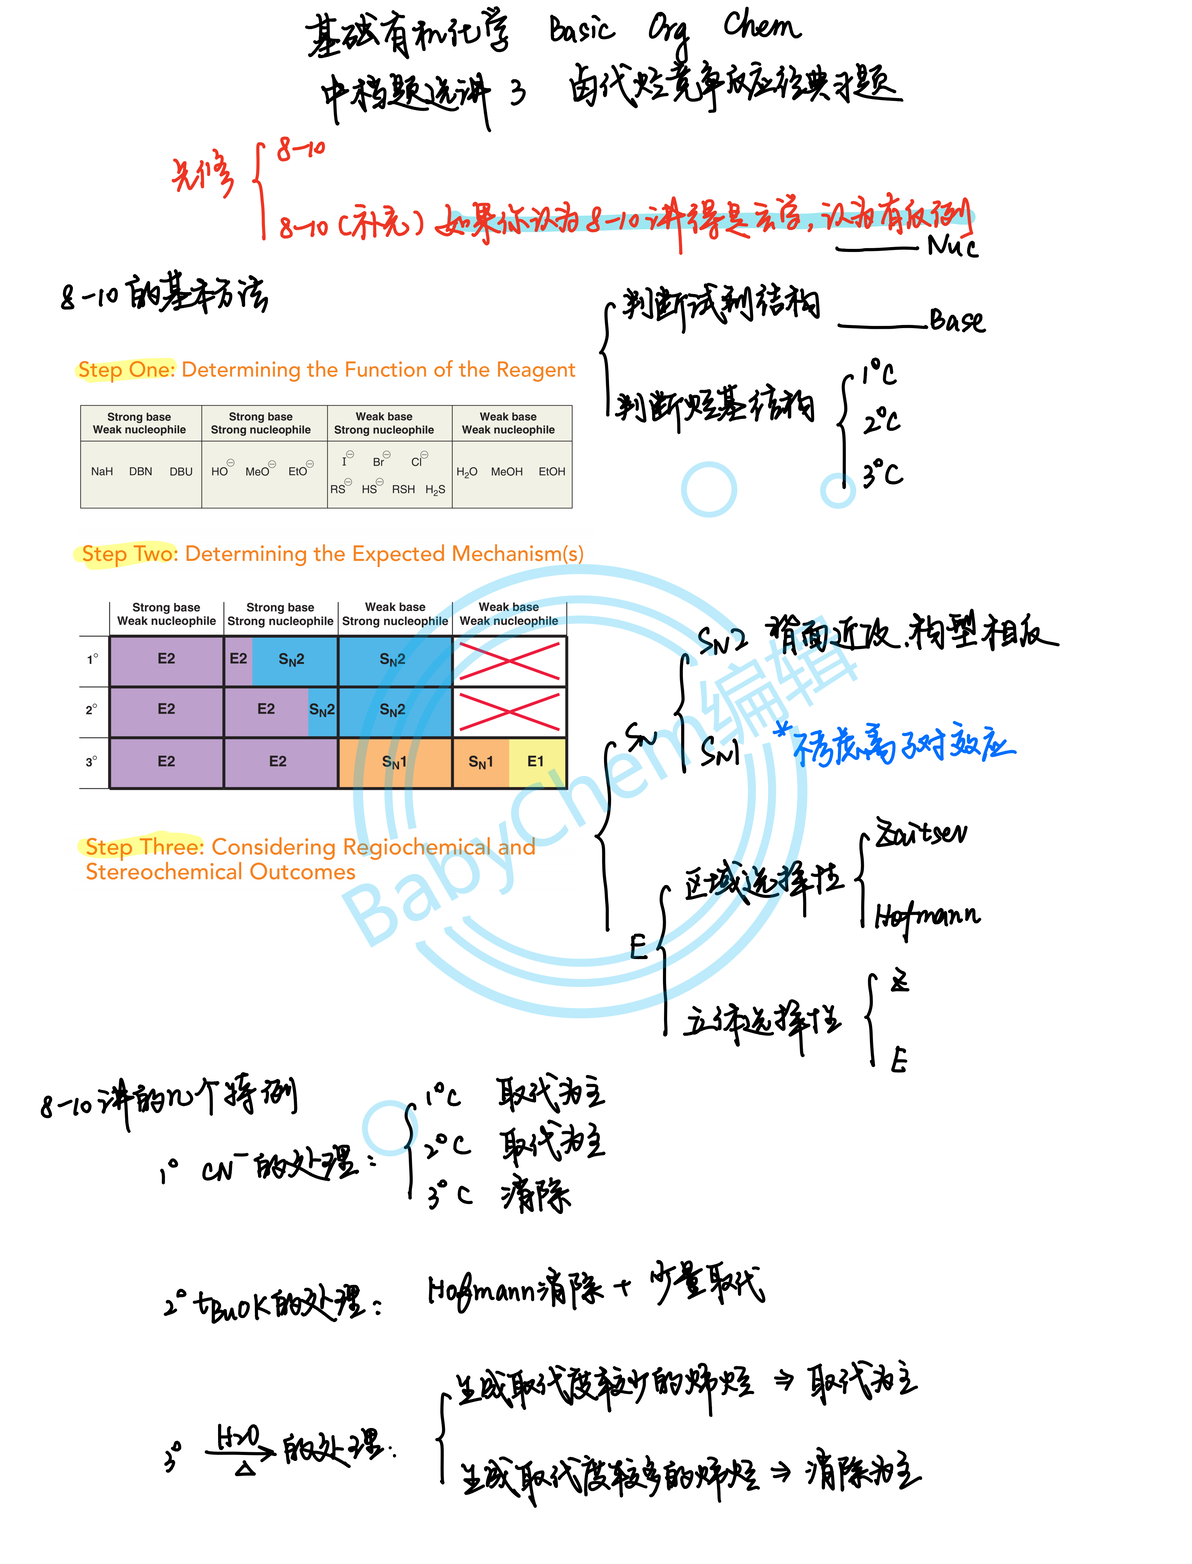 基础有机化学 Basic Org Chem
中档题选讲 3 卤代烃竞争反应经典习题
先修
8-10
8-10 (补充) 如果你认为8-10讲得是玄学,认为有反例
Nuc
8-10的基本方法
判断试剂结构
Base
Step One: Determining the Function of the Reagent
判断烃基结构
1°C
2°C
3°C
Strong base Weak nucleophile
Strong base Strong nucleophile
Weak base Strong nucleophile
Weak base Weak nucleophile
NaH DBN DBU
HO⊖ MeO⊖ EtO⊖
I⊖ Br⊖ Cl⊖
RS⊖ HS⊖ RSH H₂S
H₂O MeOH EtOH
Step Two: Determining the Expected Mechanism(s)
Strong base Weak nucleophile
Strong base Strong nucleophile
Weak base Strong nucleophile
Weak base Weak nucleophile
1° E2 E2 SN2 SN2
2° E2 E2 SN2 SN2
3° E2 E2 SN1 SN1 E1
SN
SN2 背面进攻.构型相反
SN1 *不考虑离子对效应
Step Three: Considering Regiochemical and
Stereochemical Outcomes
E
区域选择性
Zaitsev
Hofmann
立体选择性
Z
E
BabyChem编辑
8-10讲的几个特例
1° CN⁻的处理:
1°C 取代为主
2°C 取代为主
3°C 消除
2° tBuOK的处理: Hofmann消除 + 少量取代
3° H2O △ 的处理:
生成取代度较少的烯烃 ⇒ 取代为主
生成取代度较多的烯烃 ⇒ 消除为主